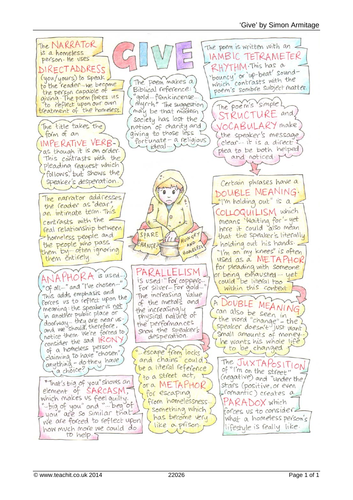 'Give' by Simon Armitage
GIVE
The NARRATOR
is a homeless
person. He uses
DIRECT ADDRESS
(you/yours) to speak
to the reader - we become
the person capable of
giving. The poem forces us
to reflect upon our own
treatment of the homeless.
The poem makes a
Biblical reference:
"gold - frankincense
- myrrh". The suggestion
may be that modern
society has lost the
notion of charity and
giving to those less
fortunate - a religious
ideal.
The poem is written with an
IAMBIC TETRAMETER
RHYTHM. This has a
"bouncy" or 'up-beat' sound -
which contrasts with the
poem's sombre subject matter.
The title takes the
form of an
IMPERATIVE VERB -
as though it is an order.
This contrasts with the
pleading request which
follows, but shows the
speaker's desperation.
The poem's 'simple'
STRUCTURE and
VOCABULARY make
the speaker's message
clear - it is a direct
plea to be both helped
and noticed.
The narrator addresses
the reader as "dear" -
an intimate term. This
contrasts with the
real relationship between
homeless people and
the people who pass
them by - often ignoring
them entirely.
SPARE
CHANGE?
HUNGRY
AND
HOMELESS
Certain phrases have a
DOUBLE MEANING.
"I'm holding out" is a
COLLOQUIALISM which
means 'waiting for' - yet
here it could also mean
that the speaker is literally
holding out his hands.
"I'm on my knees" is often
used as a METAPHOR
for pleading with someone
or being exhausted - yet
could be literal too
within this context.
ANAPHORA is used -
"Of all..." and "I've chosen..."
This adds emphasis and
forces us to reflect upon the
meaning: the speaker is not
in another public place or
doorway - they are near us
and we should, therefore,
notice them. We're forced to
consider the sad IRONY
of a homeless person
claiming to have "chosen"
anything - do they have
a choice?
PARALLELISM
is used: "For copper...
For silver... For gold..."
The increasing value
of the metals and
the increasingly
farcical nature of
the performances
show the speaker's
desperation.
A DOUBLE MEANING
can also be seen in
the word "change" - the
speaker doesn't just want
small amounts of money -
he wants his whole life
to be changed.
"That's big of you" shows an
element of SARCASM
which makes us feel guilty.
"-big of you" and "I beg of
you" are so similar that
we are forced to reflect upon
how much more we could do
to help.
"escape from locks
and chains" could
be a literal reference
to a street act,
or a METAPHOR
for escaping
from homelessness -
something which
has become very
like a prison.
The JUXTAPOSITION
of "I'm on the street"
(negative) and "under the
stars" (positive or even
romantic) creates a
PARADOX which
forces us to consider
what a homeless person's
lifestyle is really like.
© www.teachit.co.uk 2014
22026
Page 1 of 1